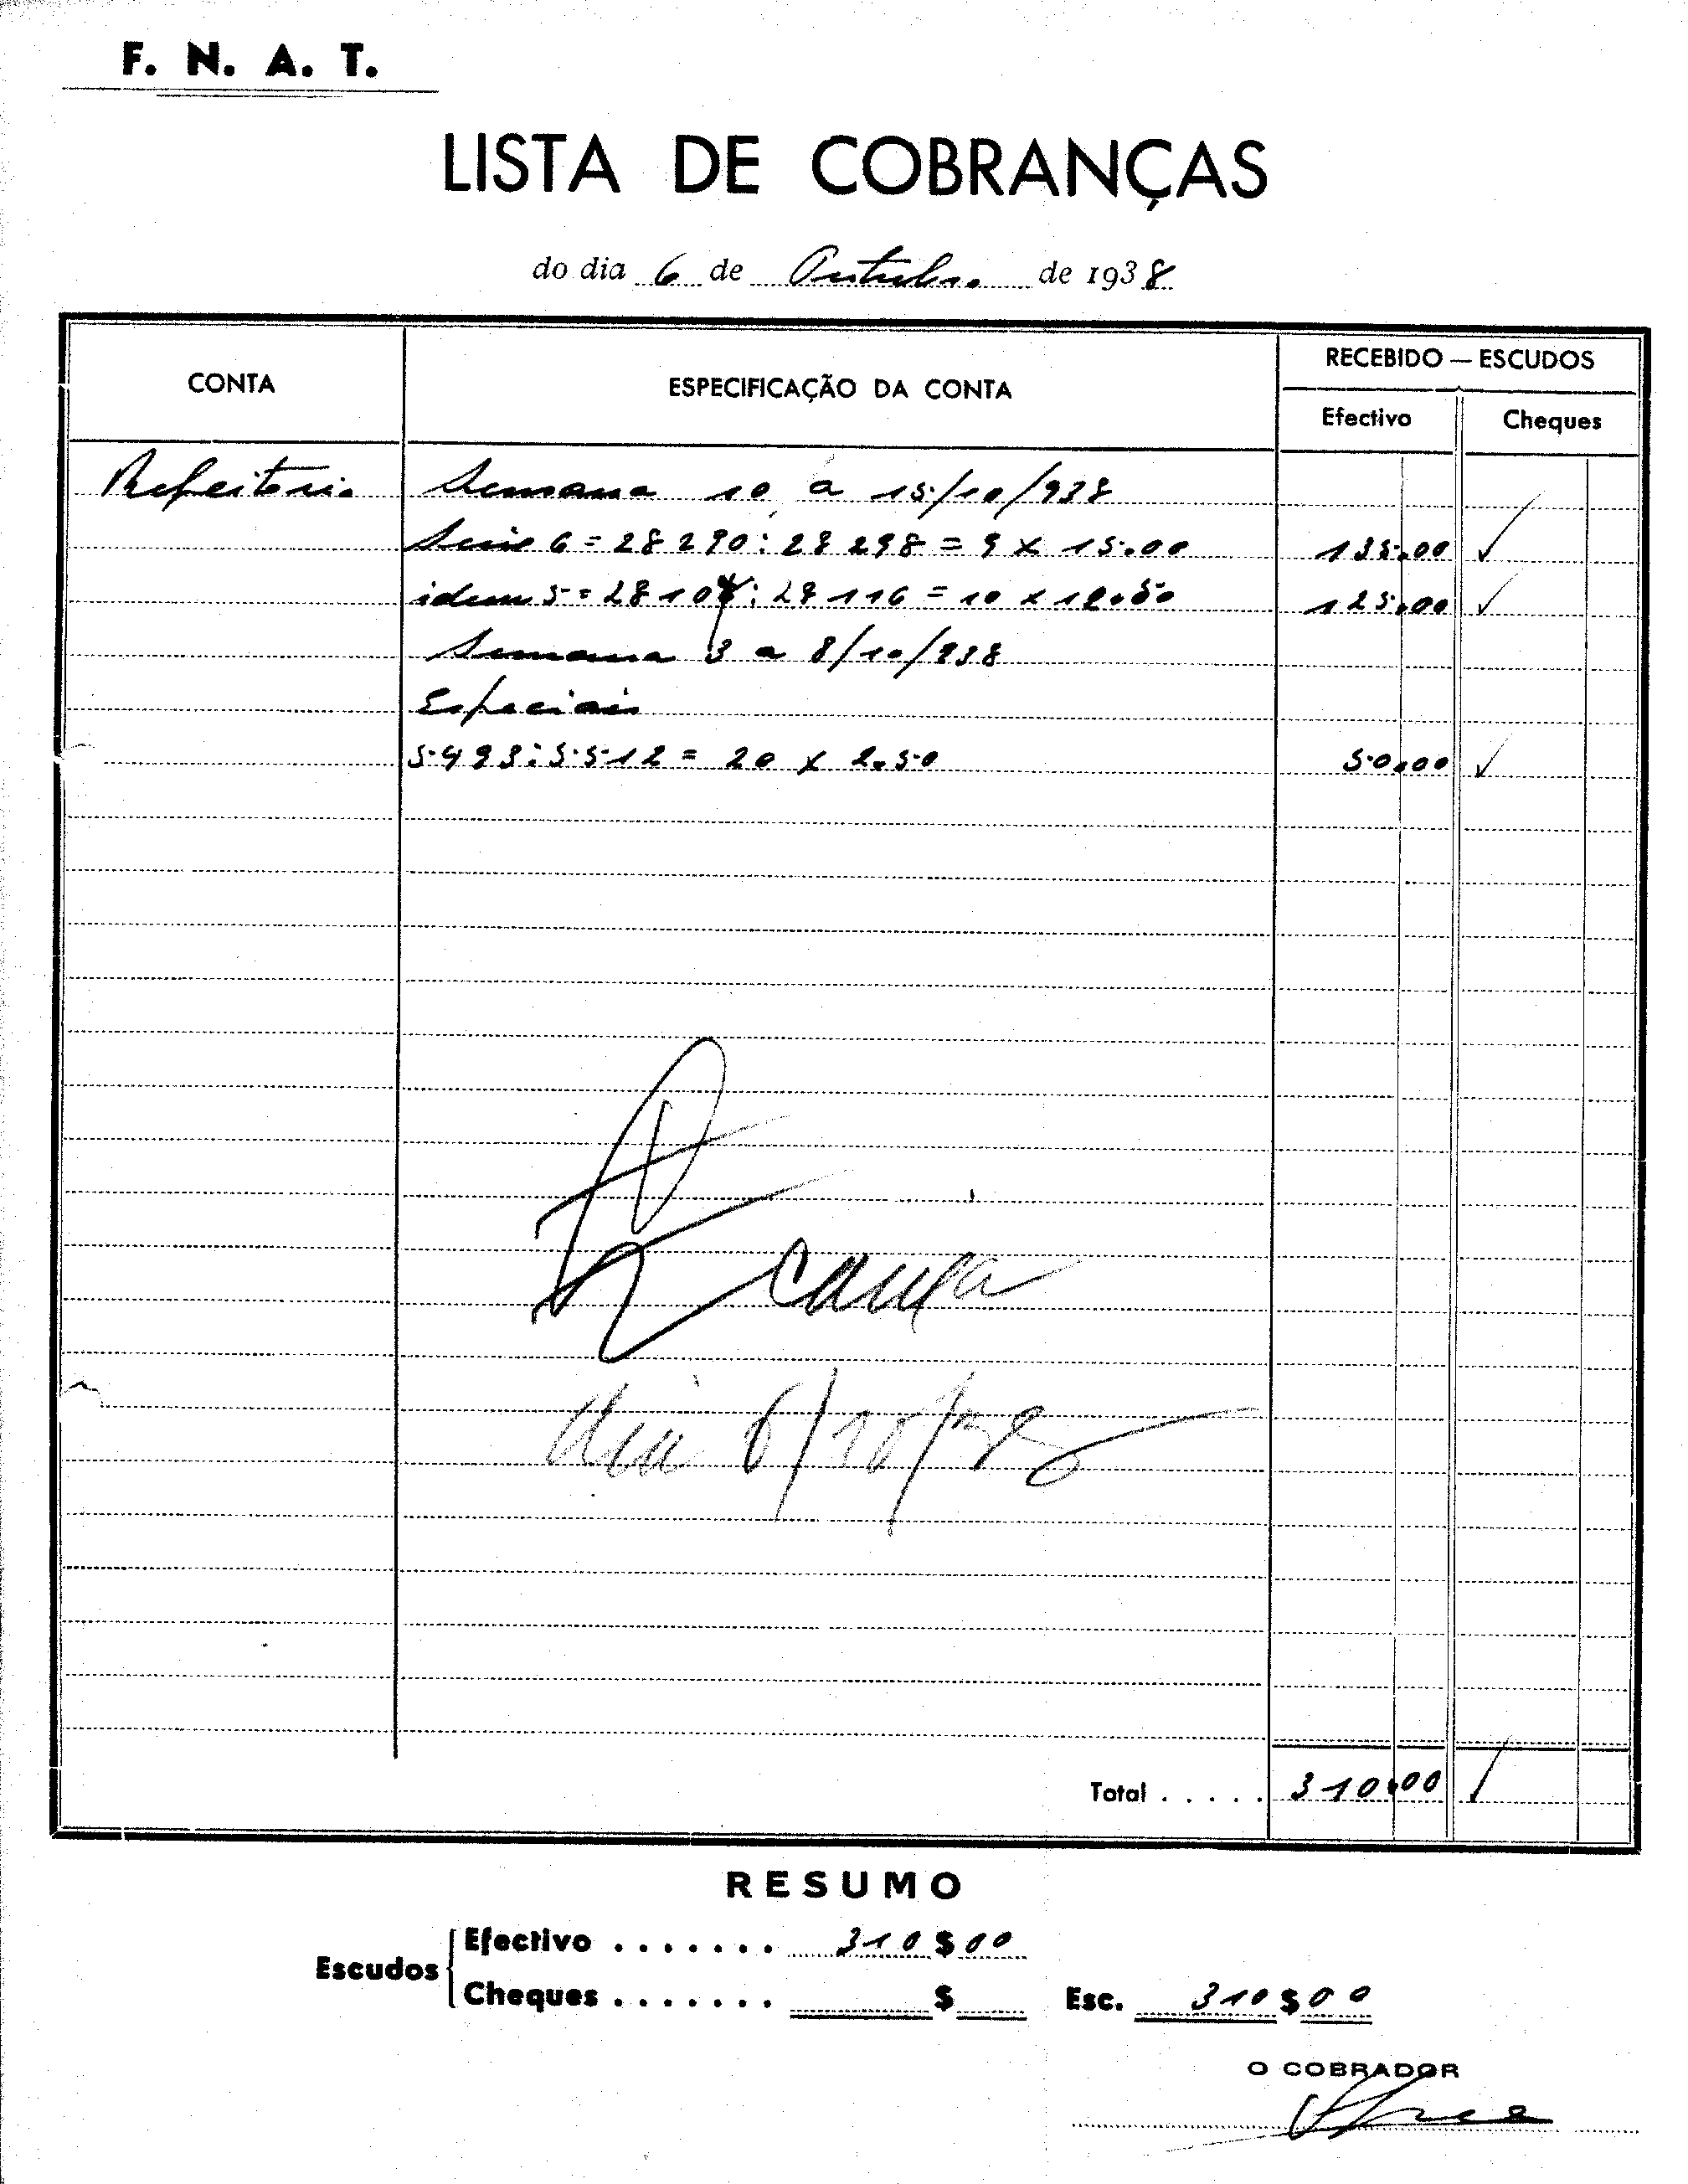 F. N. A. T.
LISTA DE COBRANÇAS
do dia 6 de Outubro de 1938
CONTA
ESPECIFICAÇÃO DA CONTA
RECEBIDO — ESCUDOS
Efectivo
Cheques
Refeitorio Semana 10 a 15/10/938
Serie 6 = 28290: 28298 = 9 x 15.00 135.00
idem 5 = 28107: 28116 = 10 x 12.50 125.00
Semana 3 a 8/10/938
Especiais
5.493: 5.512 = 20 x 2.50 50.00
caixa
dia 6/10/38
Total . . . . . 310.00
RESUMO
Escudos
Efectivo . . . . . . . 310$00
Cheques . . . . . . . $
Esc. 310$00
O COBRADOR